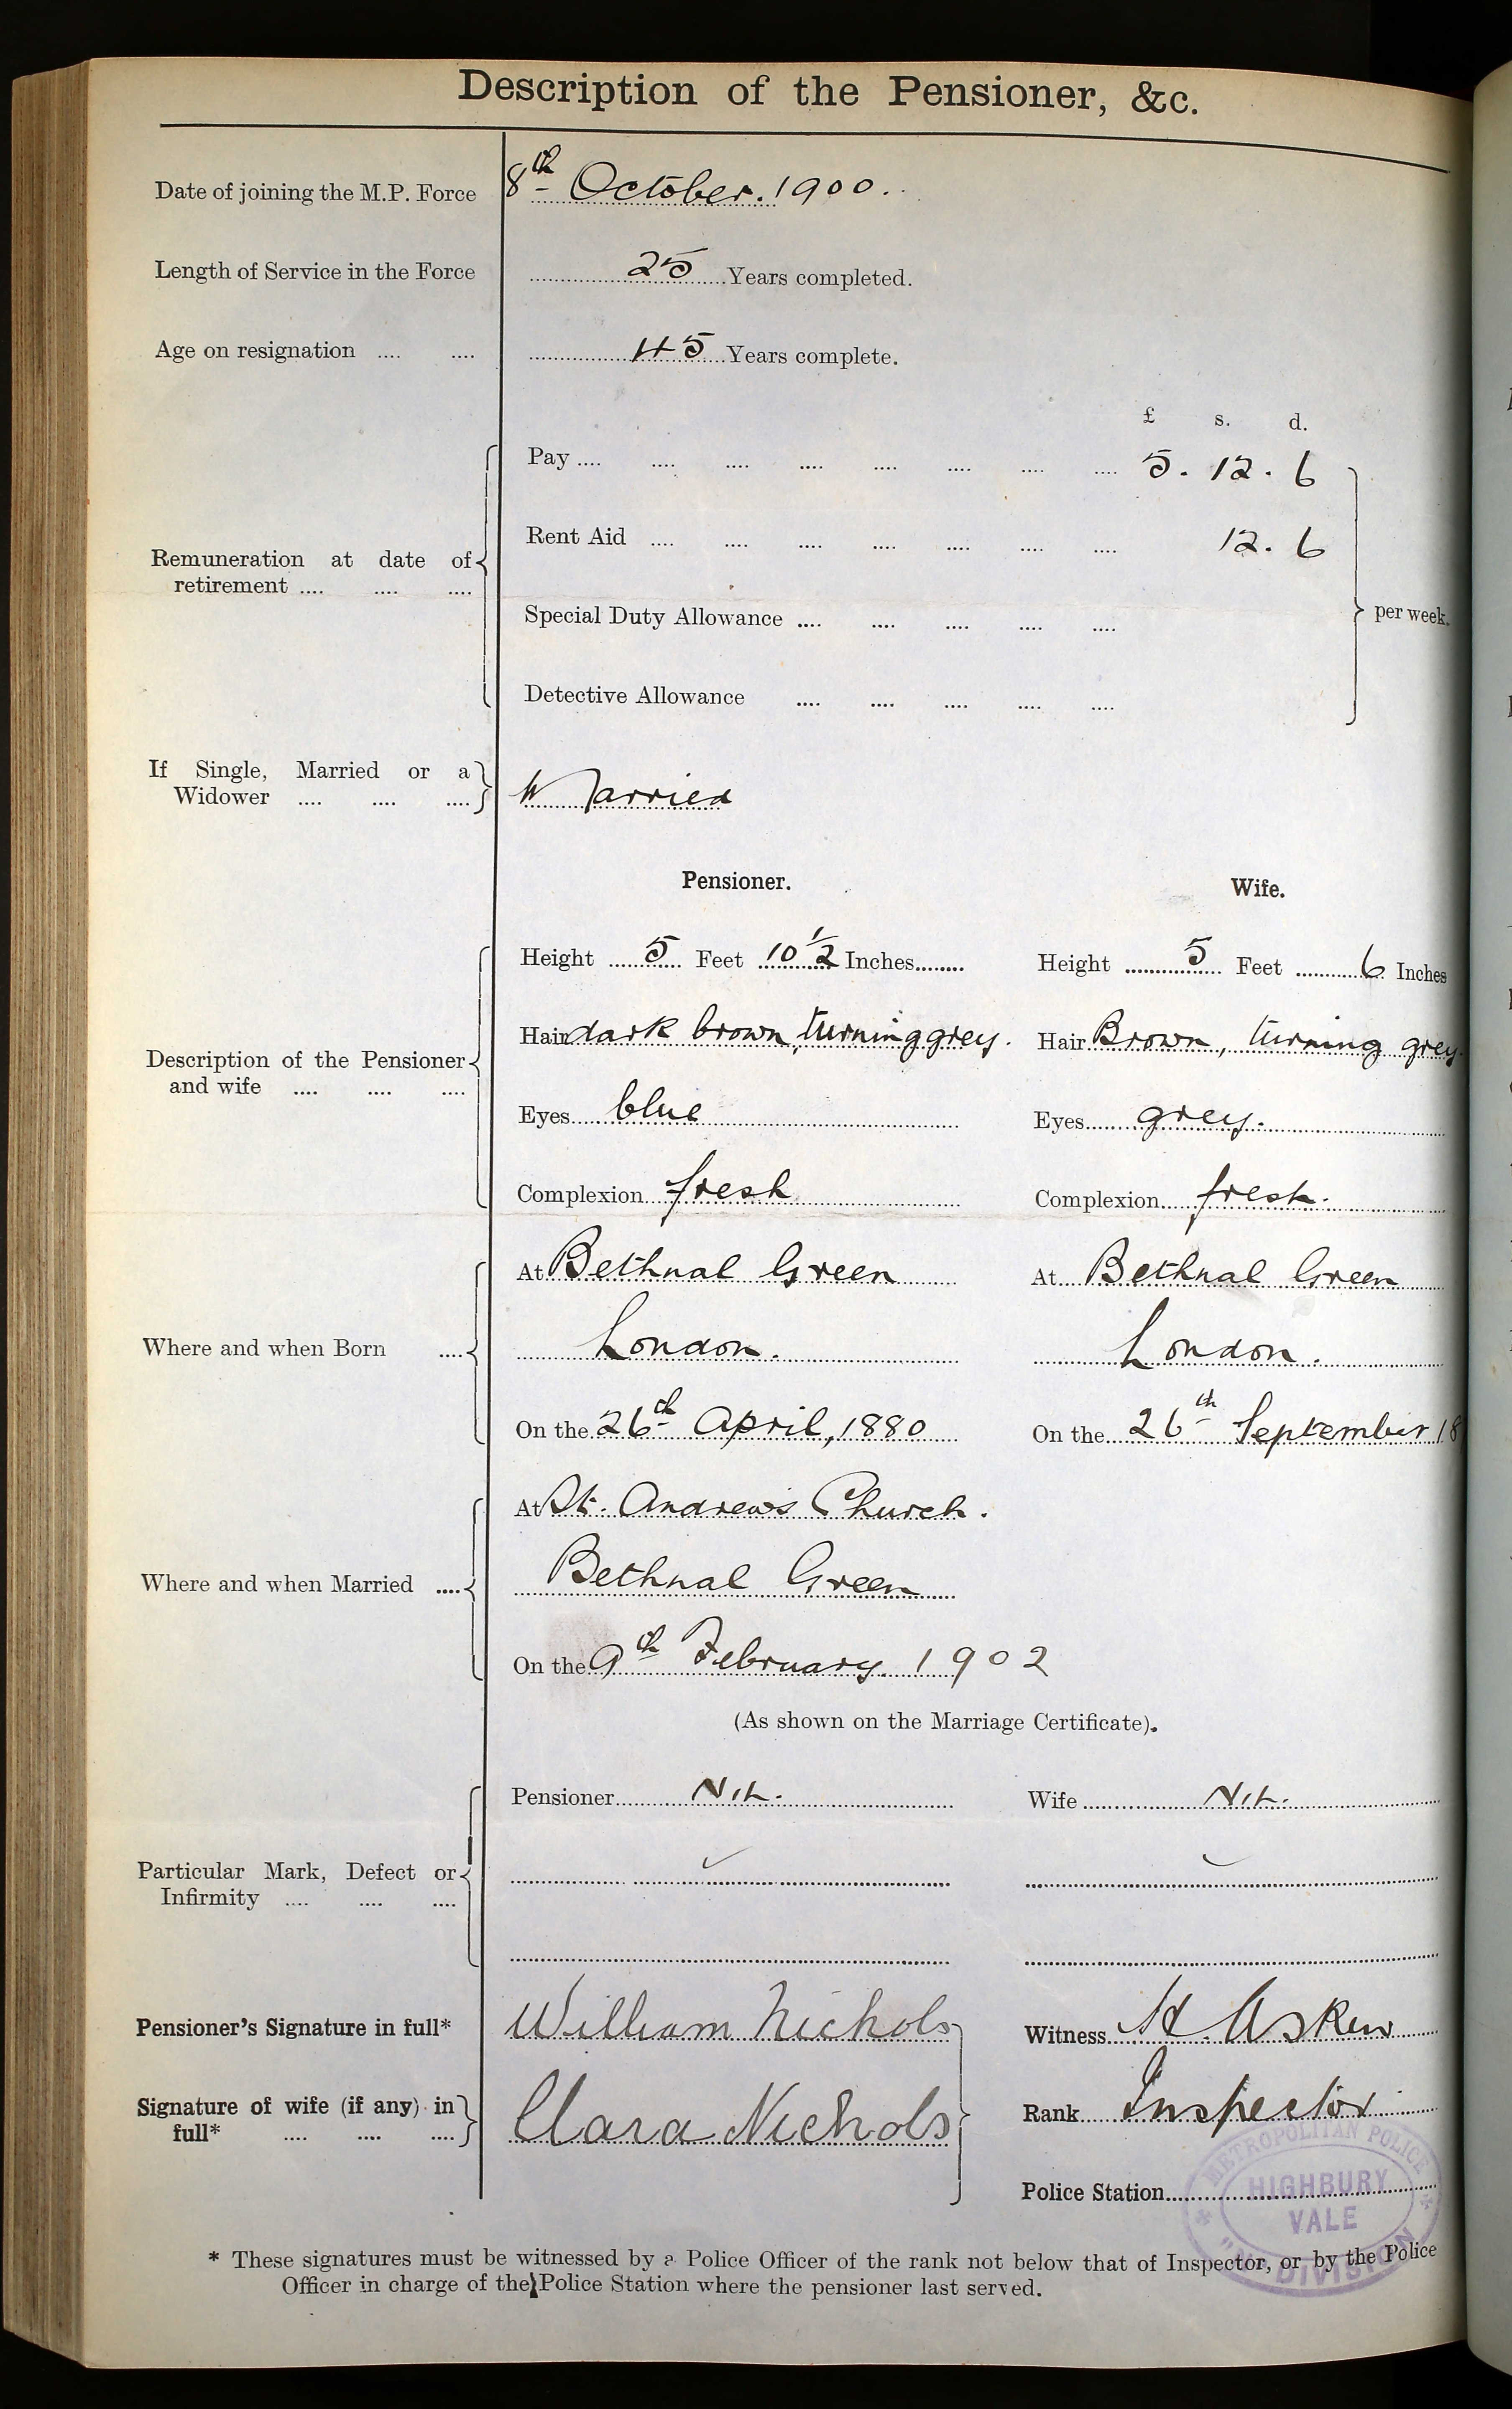 Description of the Pensioner, &c.
Date of joining the M.P. Force 8th October. 1900.
Length of Service in the Force 25 Years completed.
Age on resignation .... .... 45 Years complete.
£ s. d.
Pay .... .... .... .... .... .... .... .... 5. 12. 6
Rent Aid .... .... .... .... .... .... .... 12. 6
Remuneration at date of
retirement .... .... ....
Special Duty Allowance .... .... .... .... .... per week.
Detective Allowance .... .... .... .... ....
If Single, Married or a
Widower .... .... .... Married
Pensioner. Wife.
Height 5 Feet 10 1/2 Inches Height 5 Feet 6 Inches
Hair dark brown, turning grey. Hair Brown, turning grey.
Description of the Pensioner
and wife .... .... ....
Eyes blue Eyes grey.
Complexion fresh Complexion fresh.
At Bethnal Green At Bethnal Green
Where and when Born .... London. London.
On the 26th April, 1880 On the 26th September 18
At St. Andrew's Church.
Where and when Married .... Bethnal Green
On the 9th February. 1902
(As shown on the Marriage Certificate).
Pensioner Nil. Wife Nil.
Particular Mark, Defect or
Infirmity .... .... ....
Pensioner's Signature in full* William Nichols Witness H. Askew
Signature of wife (if any) in
full* .... .... .... Clara Nichols Rank Inspector
Police Station
METROPOLITAN POLICE
HIGHBURY
VALE
"N" DIVISION
* These signatures must be witnessed by a Police Officer of the rank not below that of Inspector, or by the Police
Officer in charge of the Police Station where the pensioner last served.